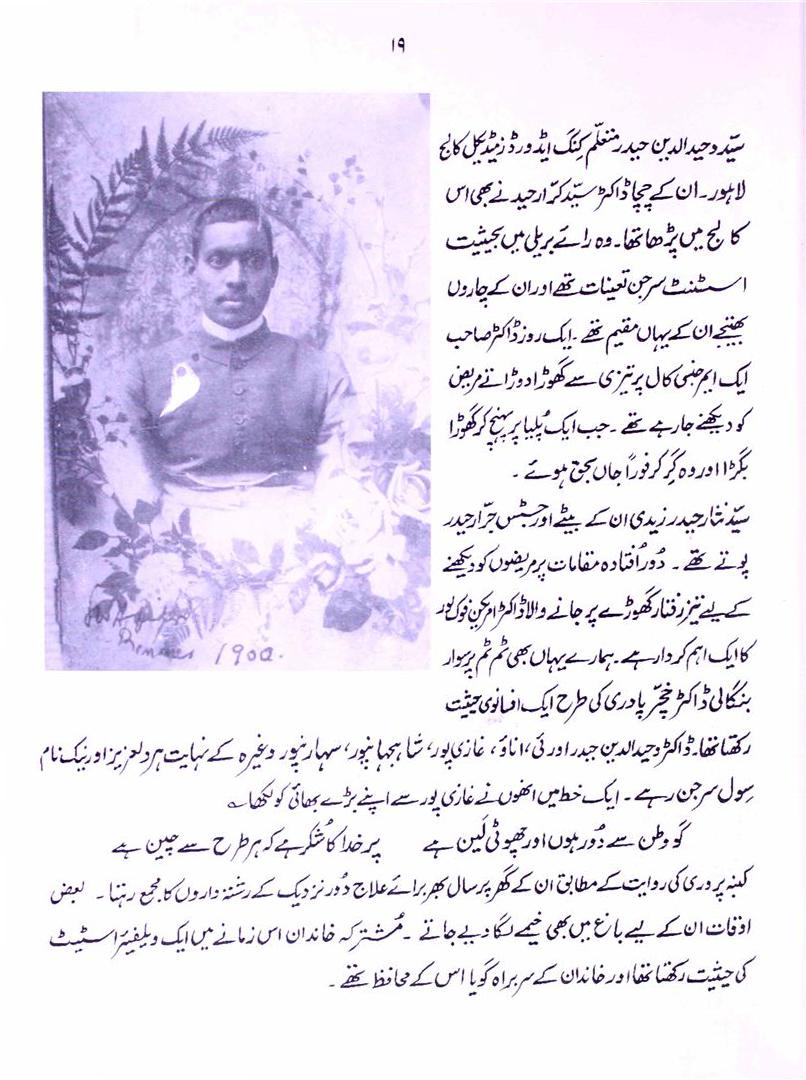 ۱۹
سیّد وحید الدین حیدر متعلّم کنگ ایڈورڈز میڈیکل کالج
لاہور۔ ان کے چچا ڈاکٹر سیّد کرّار حیدر نے بھی اس
کالج میں پڑھا تھا۔ وہ رائے بریلی میں بحیثیت
اسسٹنٹ سرجن تعینات تھے اور ان کے چاروں
بھتیجے ان کے یہاں مقیم تھے۔ ایک روز ڈاکٹر صاحب
ایک ایمرجنسی کال پر تیزی سے گھوڑا دوڑاتے مریض
کو دیکھنے جا رہے تھے۔ جب ایک پُلیا پر پہنچ کر گھوڑا
بگڑا اور وہ گر کر فوراً جاں بحق ہوئے۔
سیّد نثار حیدر زیدی ان کے بیٹے اور جسٹس جرّار حیدر
پوتے تھے۔ دُور اُفتادہ مقامات پر مریضوں کو دیکھنے
کے لیے تیز رفتار گھوڑے پر جانے والا ڈاکٹر امریکن فوک لور
کا ایک اہم کردار ہے۔ ہمارے یہاں بھی ٹم ٹم پر سوار
بنگالی ڈاکٹر خچّر پادری کی طرح ایک افسانوی حیثیت
رکھتا تھا۔ ڈاکٹر وحید الدین حیدر اورئی، اناؤ، غازی پور، شاہجہانپور، سہارنپور وغیرہ کے نہایت ہر دلعزیز اور نیک نام
سول سرجن رہے۔ ایک خط میں انھوں نے غازی پور سے اپنے بڑے بھائی کو لکھا؎
گو وطن سے دُور ہوں اور چھوٹی لَین ہے پر خدا کا شُکر ہے کہ ہر طرح سے چین ہے
کنبہ پروری کی روایت کے مطابق ان کے گھر پر سال بھر برائے علاج دُور نزدیک کے رشتہ داروں کا مجمع رہتا۔ بعض
اوقات ان کے لیے باغ میں بھی خیمے لگا دیے جاتے۔ مُشترکہ خاندان اس زمانے میں ایک ویلفیئر اسٹیٹ
کی حیثیت رکھتا تھا اور خاندان کے سربراہ گویا اس کے محافظ تھے۔
1900.